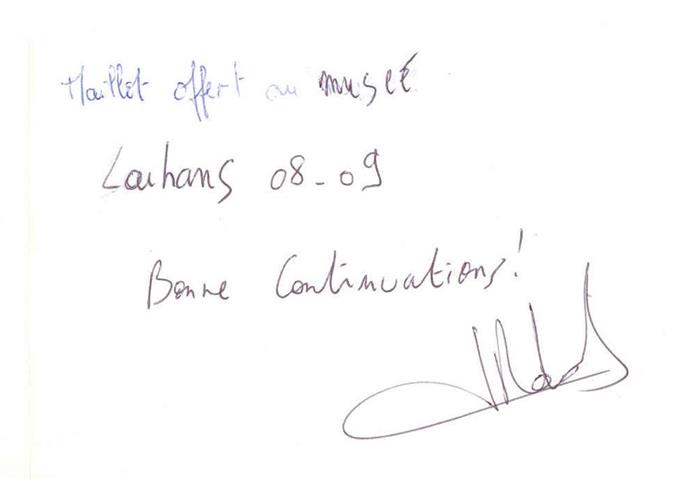 Maillot offert au musée
Louhans 08-09
Bonne Continuations!